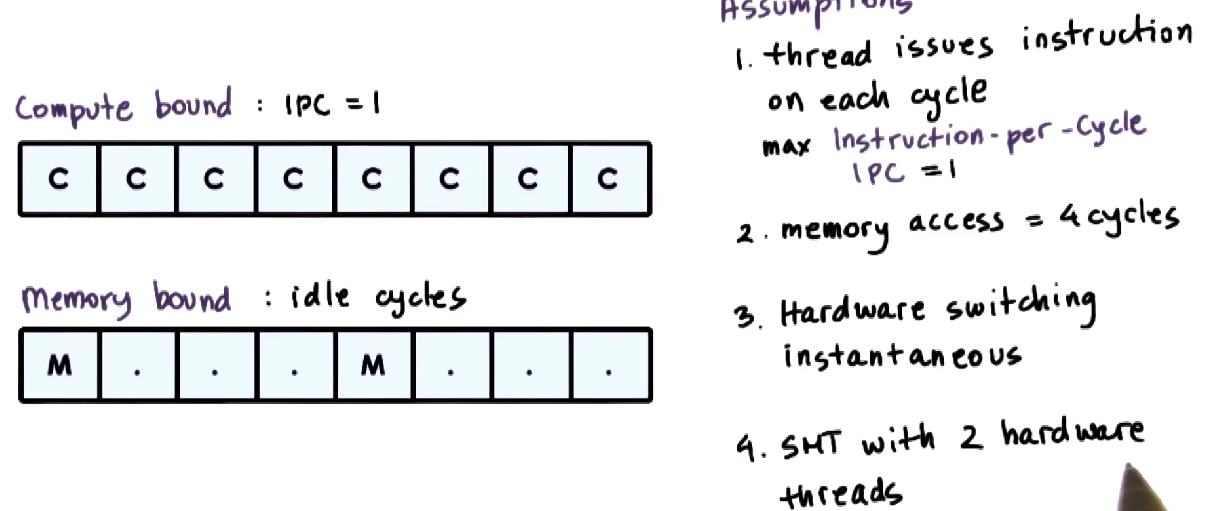 Assumptions
Compute bound : IPC = 1
C C C C C C C C
Memory bound : idle cycles
M . . . M . . .
1. thread issues instruction
on each cycle
max Instruction-per-Cycle
IPC = 1
2. memory access = 4 cycles
3. Hardware switching
instantaneous
4. SMT with 2 hardware
threads